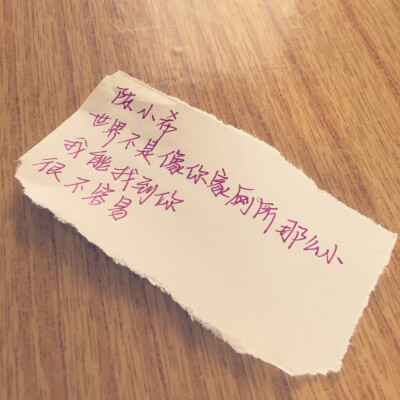 陈小希
世界不是像你家厕所那么小
我能找到你
很不容易